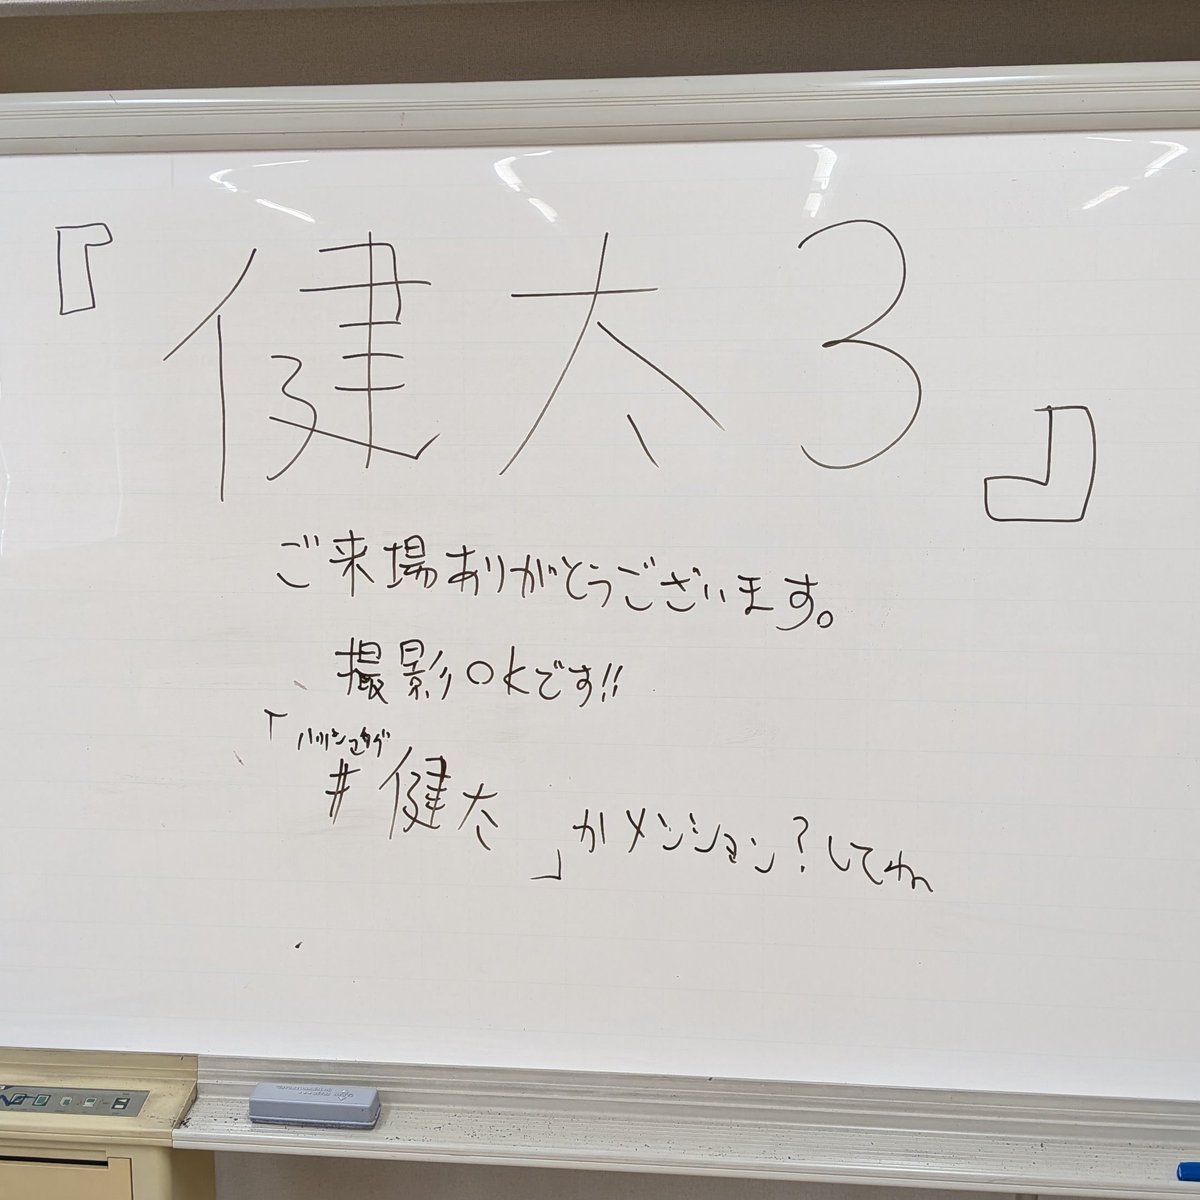 『健太3』
ご来場ありがとうございます。
撮影OKです!!
ハッシュタグ
「#健太」かメンション?してね